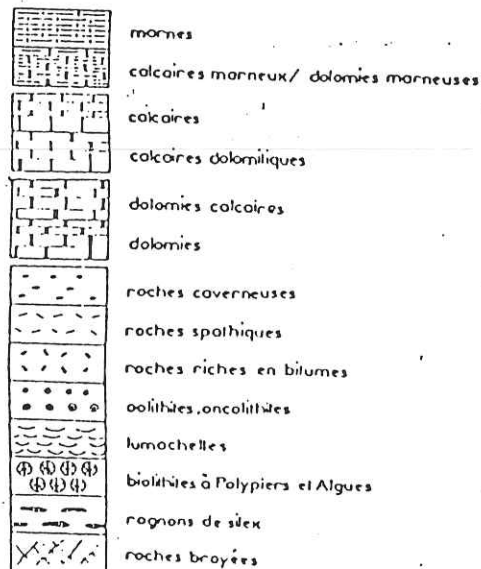 marnes
calcaires marneux/ dolomies marneuses
calcaires
calcaires dolomitiques
dolomies calcaires
dolomies
roches caverneuses
roches spathiques
roches riches en bitumes
oolithites, oncolithites
lumachelles
biolithites à Polypiers et Algues
rognons de silex
roches broyées